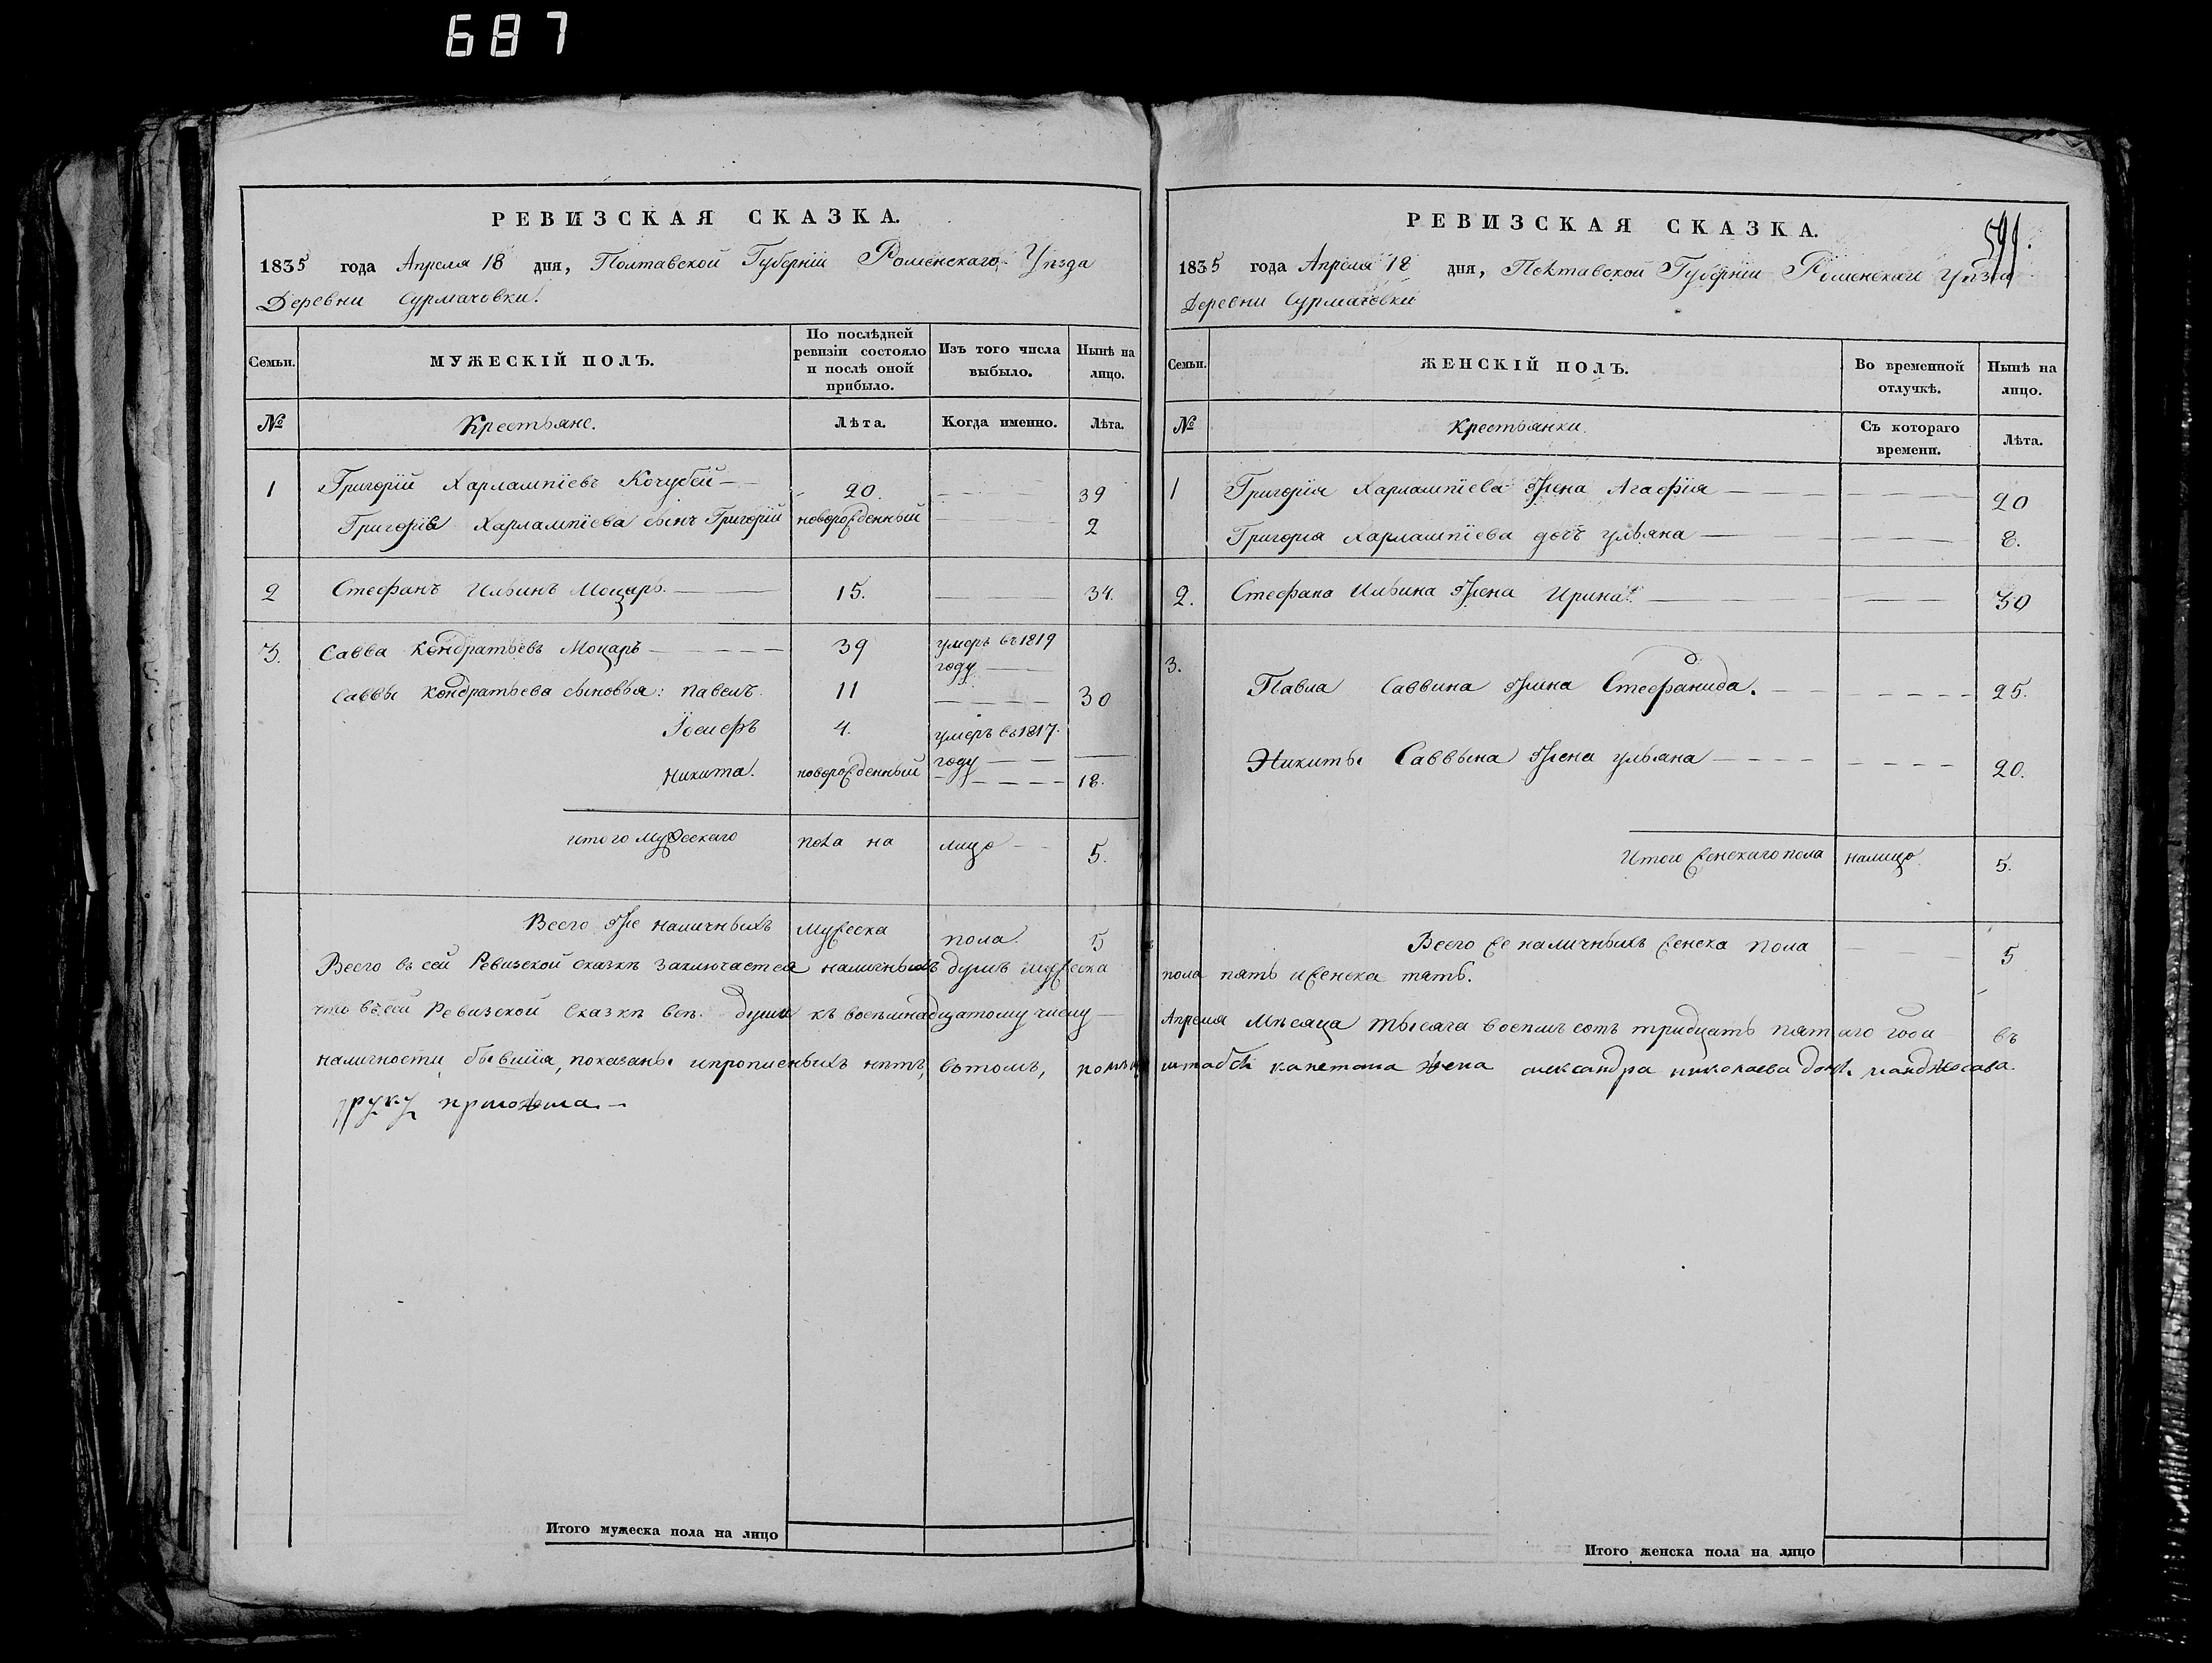 687
РЕВИЗСКАЯ СКАЗКА.
1835 года Апреля 18 дня, Полтавской Губерніи Роменскаго Уѣзда
Деревни Сурмачовки.
Семьи.
МУЖЕСКІЙ ПОЛЪ.
По послѣдней ревизіи состояло и послѣ оной прибыло.
Изъ того числа выбыло.
Нынѣ на лицо.
№
Крестьяне.
Лѣта.
Когда именно.
Лѣта.
1 Григорій Харлампіевъ Кочубей 20. 39
Григорія Харлампіева сынъ Григорій новорожденный 2
2 Стефанъ Ильинъ Моцарь. 15. 34.
3. Савва Кондратьевъ Моцарь 39 умеръ въ 1819 году
Саввы Кондратьева сыновья: Павелъ. 11 30
Іосифъ 4. умеръ въ 1817. году
Никита. новорожденный 18.
Итого мужескаго пола на лицо 5.
Всего же наличныхъ мужеска пола. 5
Всего въ сей Ревизской сказкѣ заключается наличныхъ душъ мужеска
что въ сей Ревизской Сказкѣ всѣ душы къ восемнадцатому числу
наличности бывшія, показаны и прописныхъ нѣтъ, вътомъ,
руку приложила.
Итого мужеска пола на лицо
РЕВИЗСКАЯ СКАЗКА.
1835 года Апреля 18 дня, Полтавской Губерніи Роменскаго Уѣзда
Деревни Сурмачовки
Семьи.
ЖЕНСКІЙ ПОЛЪ.
Во временной отлучкѣ.
Нынѣ на лицо.
№
Крестьянки.
Съ котораго времени.
Лѣта.
1 Григорія Харлампіева жена Агафія 20
Григорія Харлампіева дочь Ульяна 8.
2. Стефана Ильина жена Ирина. 30
3.
Павла Саввина жена Стефанида. 25.
Никиты Саввына жена Ульяна 20.
Итого женскаго пола налицо. 5.
Всего же наличныхъ женска пола 5
пола пять и женска пять.
Апреля Мѣсяца тысяча восемъ сотъ тридцать пятаго года въ
штабсъ капетана жена александра николаева
Итого женска пола на лицо